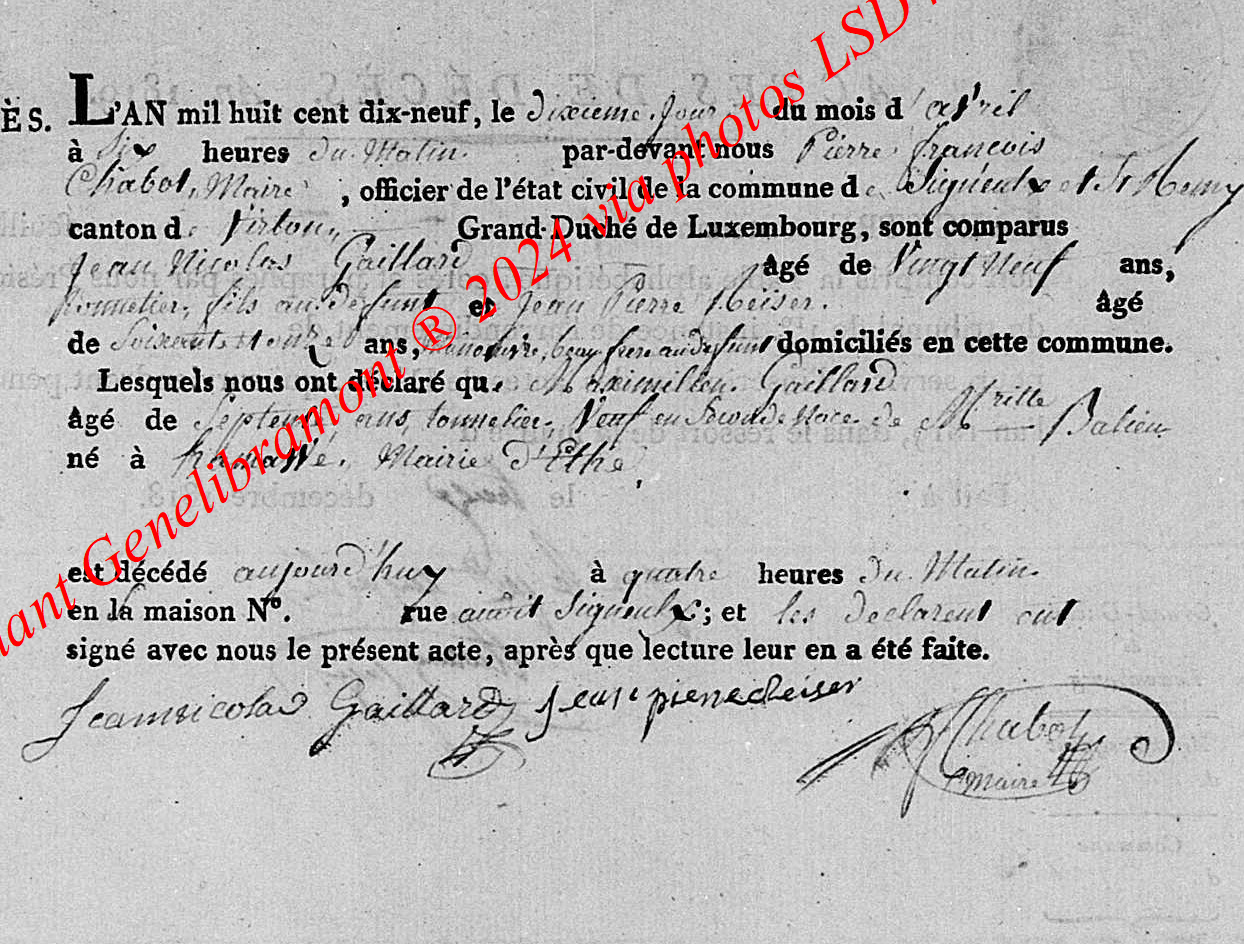 ÈS. L'AN mil huit cent dix-neuf, le dixieme jour du mois d'avril
à dix heures du Matin. par-devant nous Pierre francois
Chabot, Maire, officier de l'état civil de la commune de Signeulx et St Remy
canton de Virton, Grand-Duché de Luxembourg, sont comparus
Jean Nicolas Gaillard âgé de Vingt Neuf ans,
tonnelier, fils au defunt et Jean Pierre Keiser. âgé
de Soixante et onze ans, manoeuvre, beau frere au defunt domiciliés en cette commune.
Lesquels nous ont déclaré que Maximilien Gaillard
âgé de Septente ans, tonnelier, Veuf en Seconde Noce de M Balieu
né à Mairie d'Ethe
est décédé aujourd'huy à quatre heures du Matin
en la maison Nº. rue audit Signeulx; et les declarent ont
signé avec nous le présent acte, après que lecture leur en a été faite.
Jeannicolas Gaillard Jean pierre Keiser Chabot
maire
nant Genelibramont ® 2024 via photos LSD